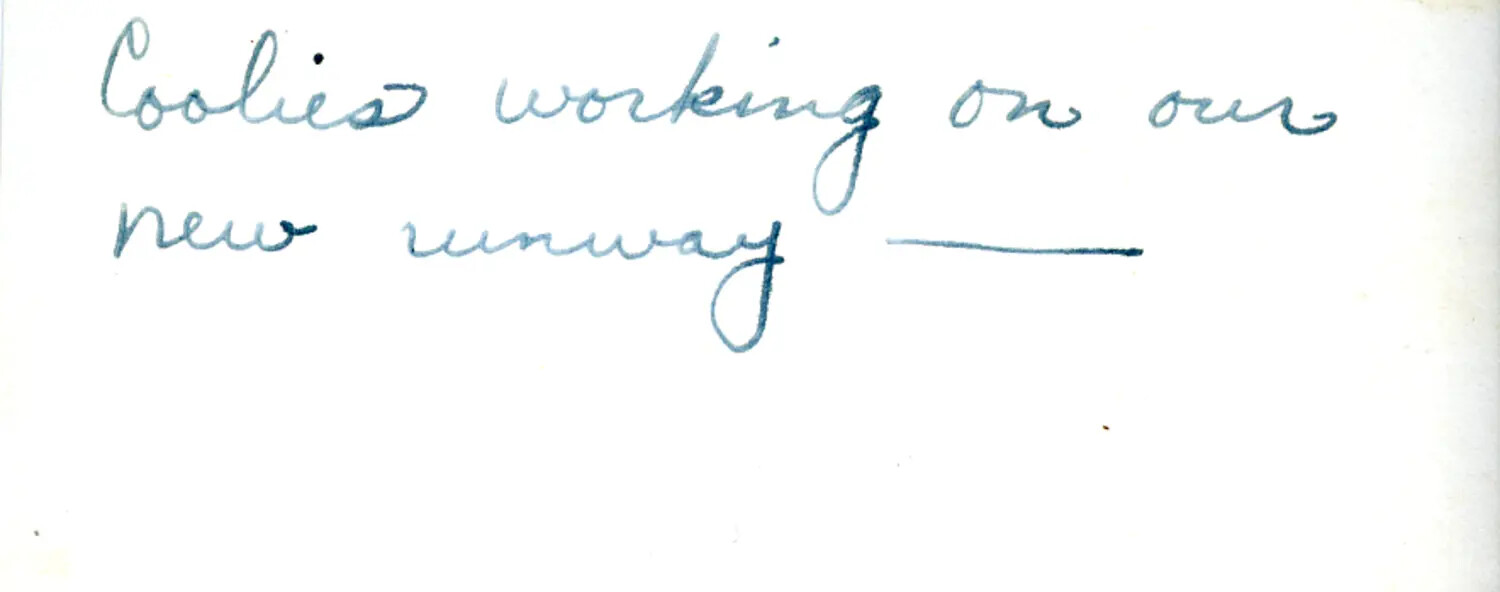 Coolies working on our
new runway —